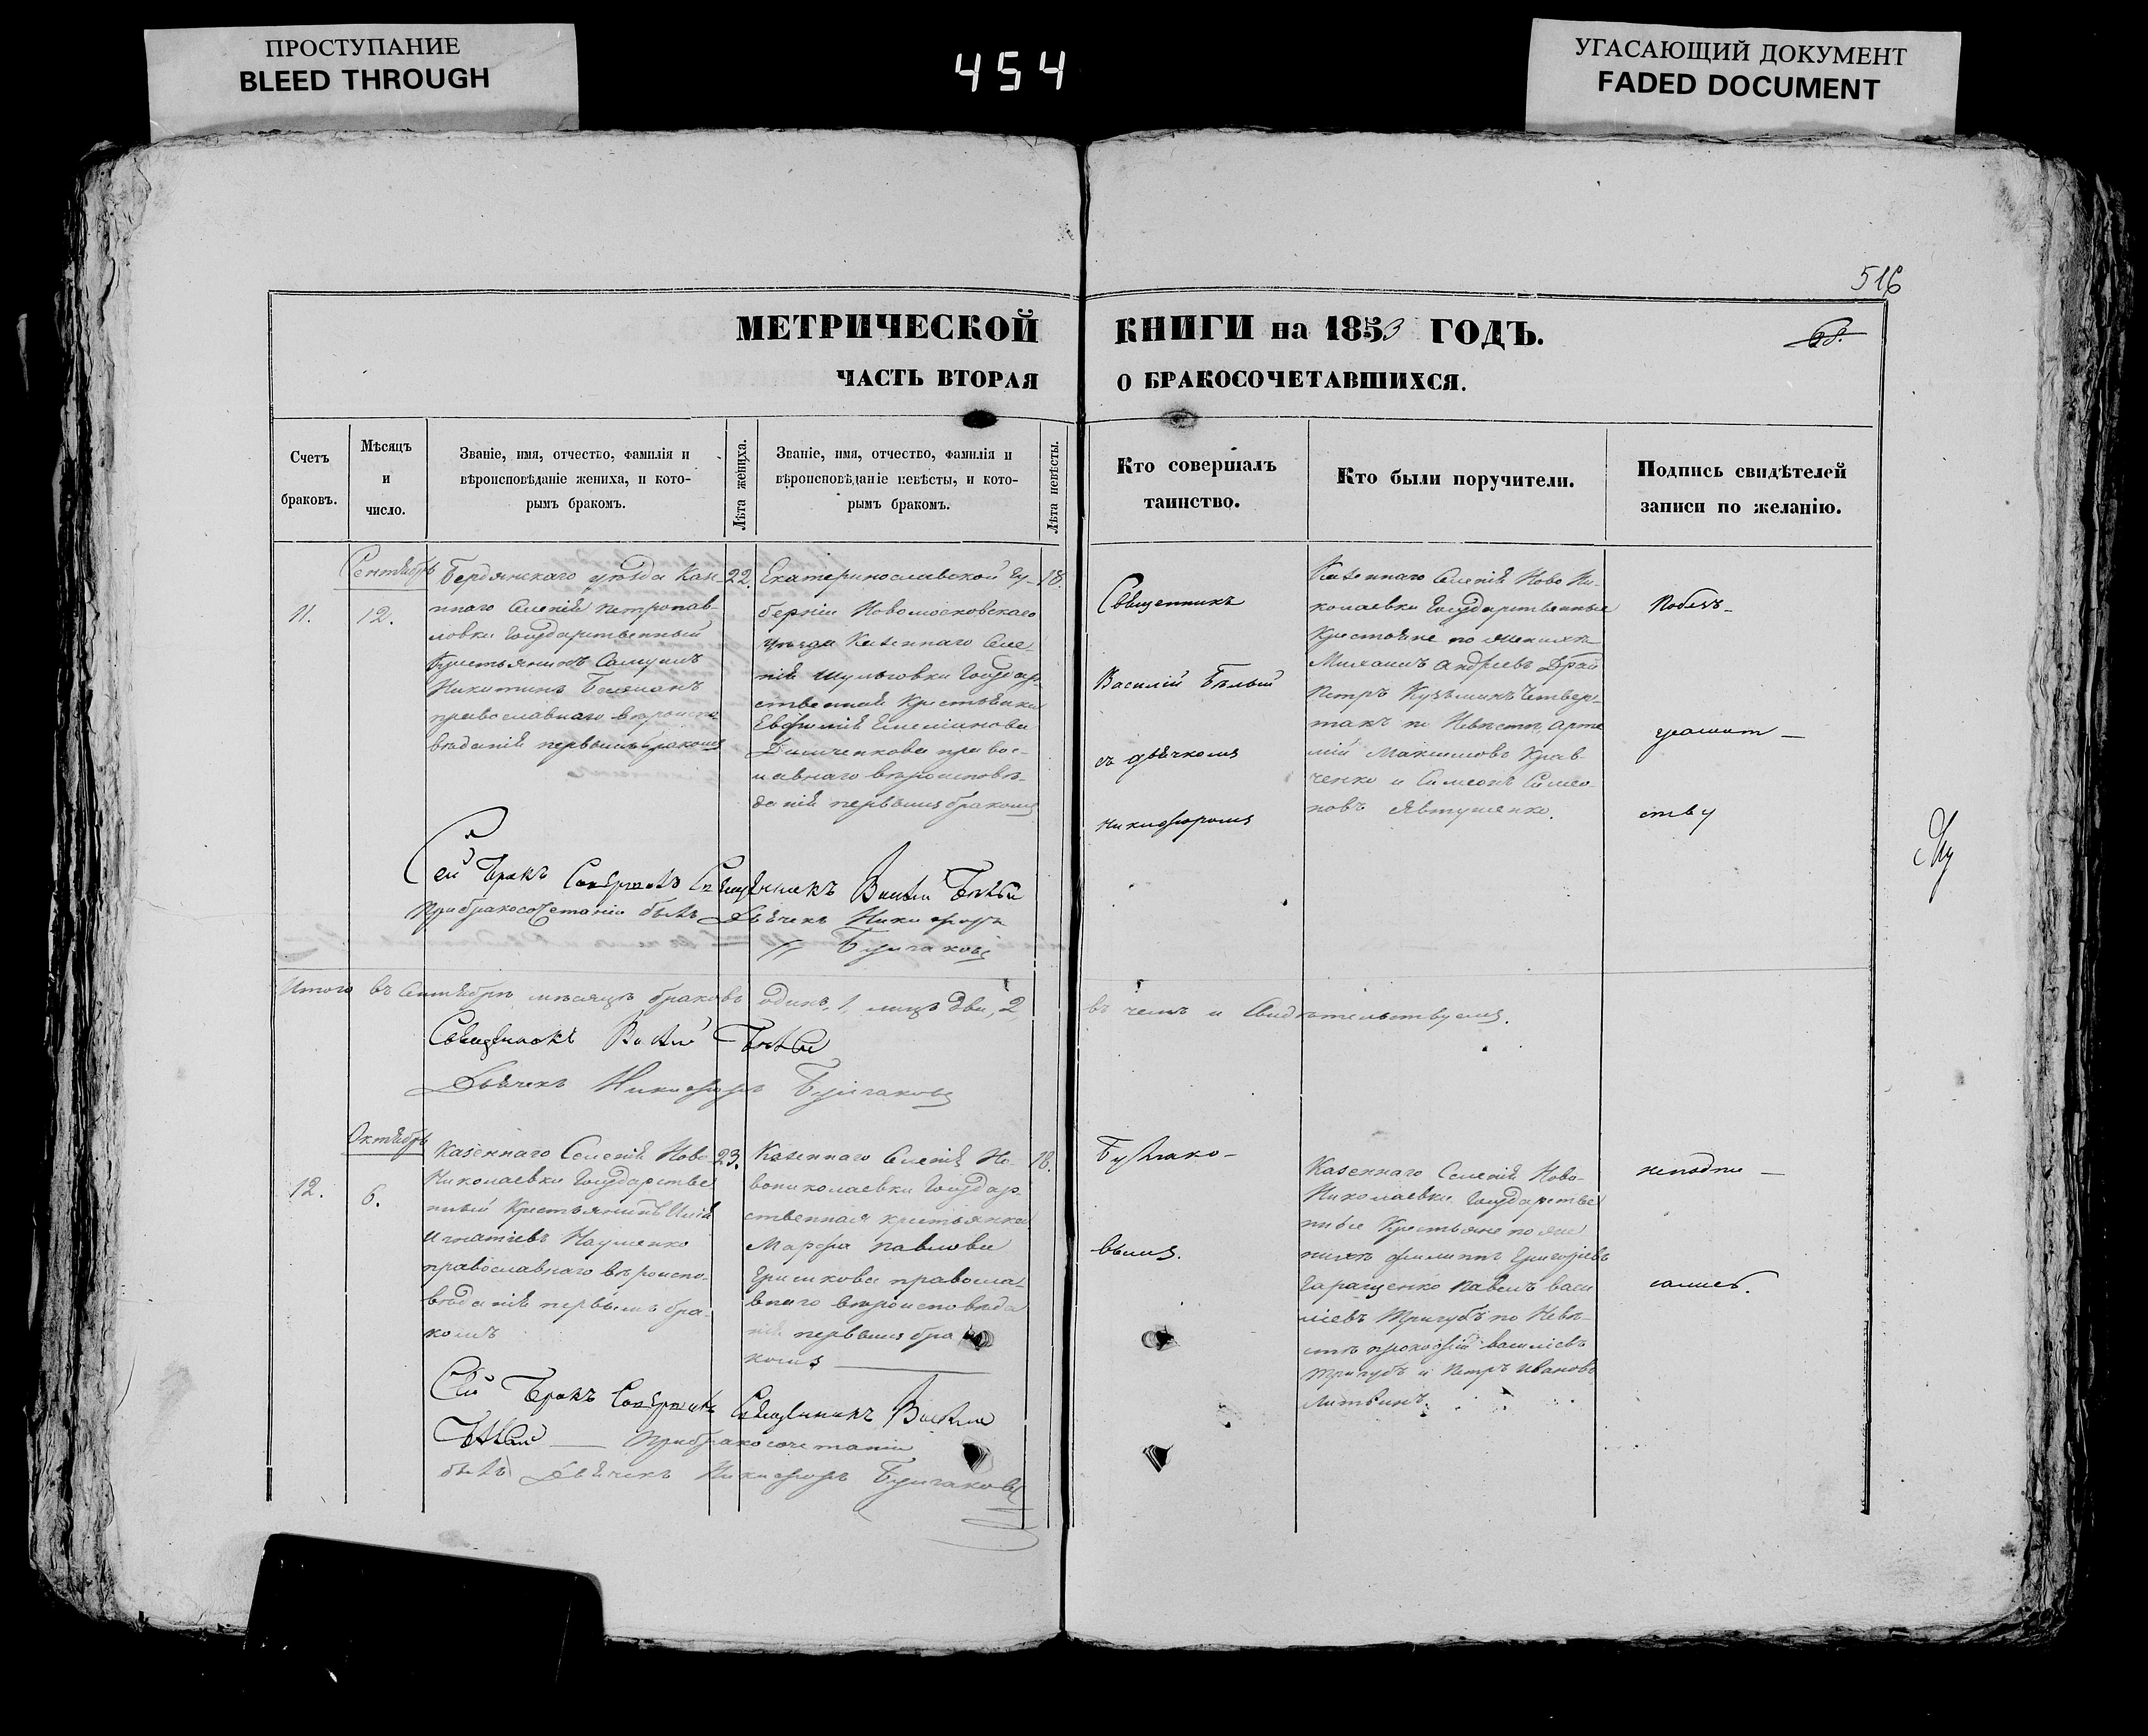 ПРОСТУПАНИЕ
BLEED THROUGH
454
УГАСАЮЩИЙ ДОКУМЕНТ
FADED DOCUMENT
516
МЕТРИЧЕСКОЙ КНИГИ на 1853 ГОДЪ.
68.
ЧАСТЬ ВТОРАЯ О БРАКОСОЧЕТАВШИХСЯ.
Счетъ
браковъ.
Мѣсяцъ
и
число.
Званіе, имя, отчество, фамилія и
вѣроисповѣданіе жениха, и кото-
рымъ бракомъ.
Лѣта жениха.
Званіе, имя, отчество, фамилія и
вѣроисповѣданіе невѣсты, и кото-
рымъ бракомъ.
Лѣта невѣсты.
Кто совершалъ
таинство.
Кто были поручители.
Подпись свидѣтелей
записи по желанію.
Сентябрь
11.
12.
Бердянскаго уѣзда Казе
ннаго Селенія Петропав-
ловки Государственный
Крестьянинъ Самуилъ
Никитинъ
православнаго вѣроиспо
вѣданія первымъ бракомъ
22.
Екатеринославской Гу-
берніи Новомосковскаго
уѣзда Казеннаго Селе
нія Шульговки Государ
ственная Крестьянка
Евфимія Емеліанова
Демченкова правос-
лавнаго вѣроисповѣ-
данія первымъ бракомъ
18.
Священникъ
Василій Бѣлый
съ дьячкомъ
Никифоромъ
Казеннаго Селенія Ново Ни-
колаевки Государственные
Крестьяне по женихѣ
Михаилъ Андреевъ
Петръ Кузьминъ Четвер-
такъ по Невѣстѣ Арте
мій Максимовъ Крав-
ченко и Симеонъ Симео-
новъ Явтушенко.
Побезъ-
грамот-
ству
Сей Бракъ Совершалъ Священникъ Василій Бѣлый
При бракосочетаніи былъ Дьячекъ Никифоръ
Булгаковъ
Итого въ Сентябрѣ мѣсяцѣ браковъ одинъ, 1, лицъ два, 2, въ чемъ и Свидѣтельствуемъ.
Священникъ Василій Бѣлый
Дьячекъ Никифоръ Булгаковъ
Октябрь
12.
6.
Казеннаго Селенія Ново
Николаевки Государстве
нный Крестьянинъ Илія
Игнатіевъ Науменко
православнаго вѣроиспо-
вѣданія первымъ бра-
комъ
23.
Казеннаго Селенія Но-
вониколаевки Государ-
ственная крестьянка
Марфа Павлова
Гришкова правосла
внаго вѣроисповѣда
нія первымъ бра
комъ
18.
Булгако-
вымъ.
Казеннаго Селенія Ново-
Николаевки Государстве
нные Крестьяне по же
нихѣ Филиппъ Григоріевъ
Гаращенко Павелъ Васи
ліевъ Тригубъ по Невѣ-
стѣ Прокофій Василіевъ
Тригубъ и Петръ Ивановъ
Литвинъ.
неподпи-
салися.
Сей Бракъ Совершалъ Священникъ Василій
Бѣлый При бракосочетаніи
былъ Дьячекъ Никифоръ Булгаковъ